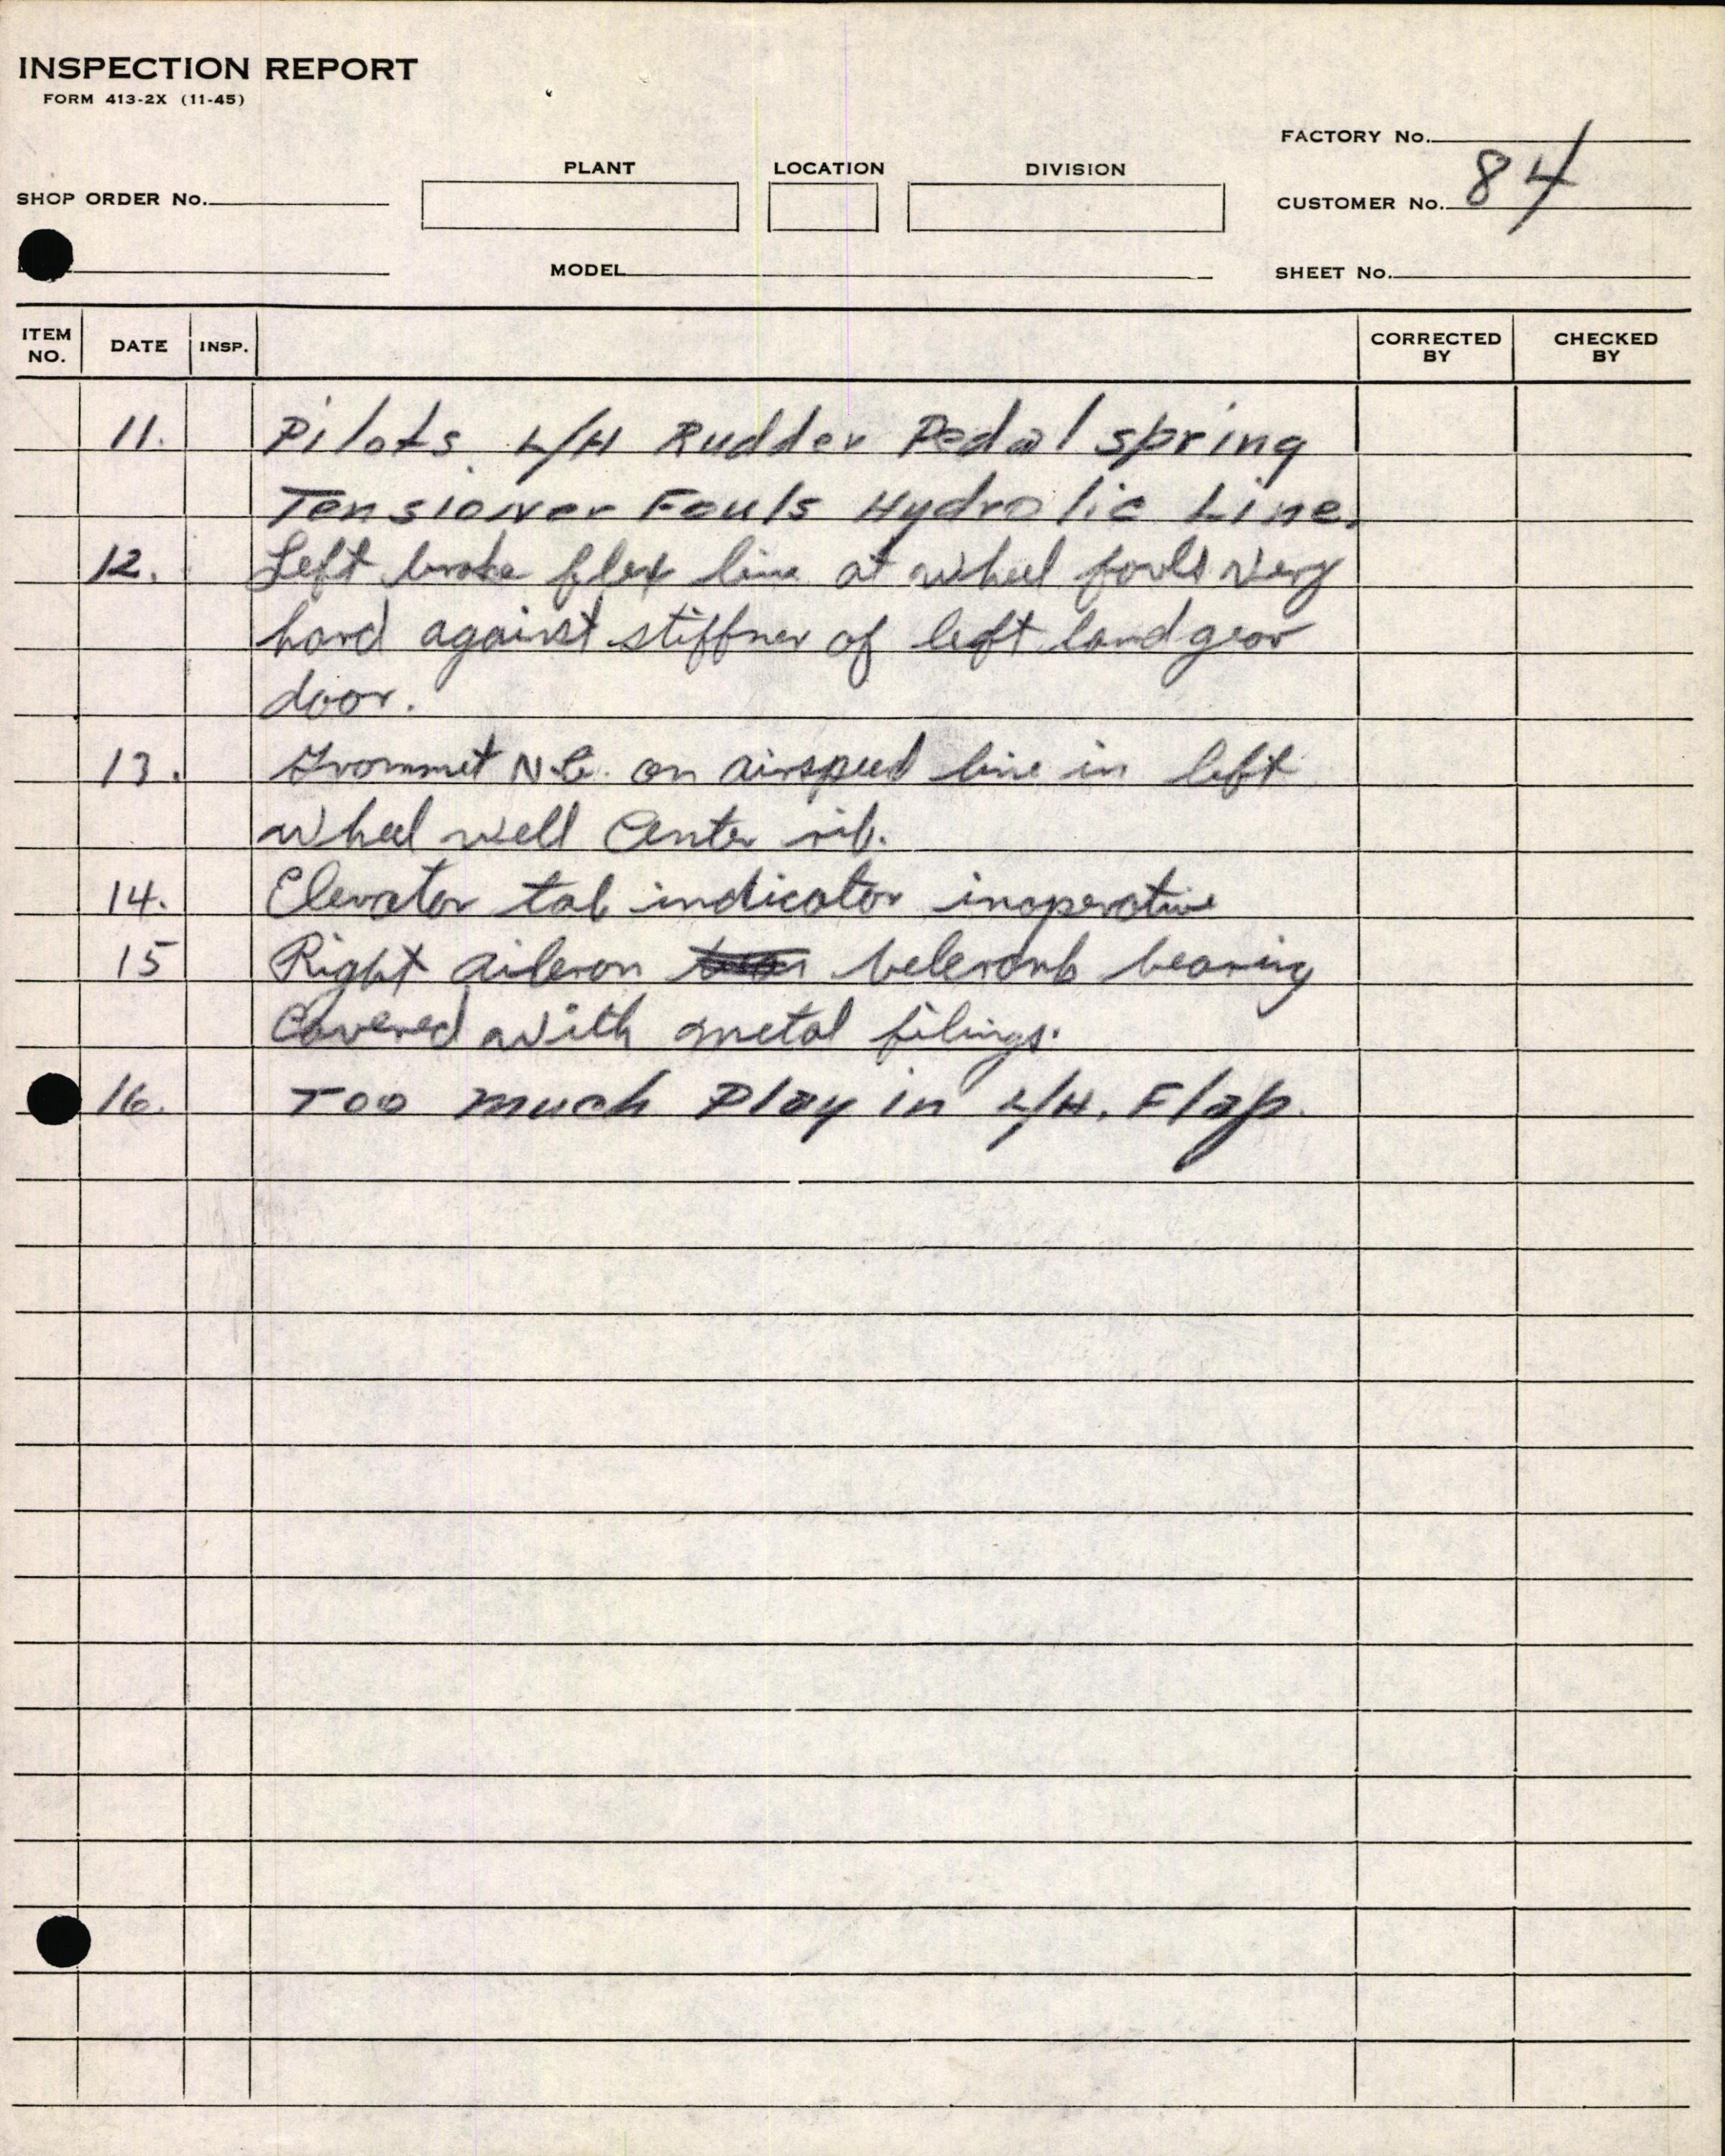 INSPECTION REPORT
FORM 413-2X (11-45)
FACTORY No.
PLANT LOCATION DIVISION
SHOP ORDER No.
CUSTOMER No. 84
MODEL
SHEET No.
ITEM NO. DATE INSP. CORRECTED BY CHECKED BY
11. Pilots L/H Rudder Pedal spring
Tensioner Fouls Hydrolic Line.
12. Left brake flex line at wheel fouls very
hard against stiffner of left land gear
door.
13. Grommet N.G. on airspeed line in left
wheel well Center rib.
14. Elevator tab indicator inoperative
15 Right aileron belcrank bearing
Covered with metal filings.
16. Too much Play in L/H. Flap.